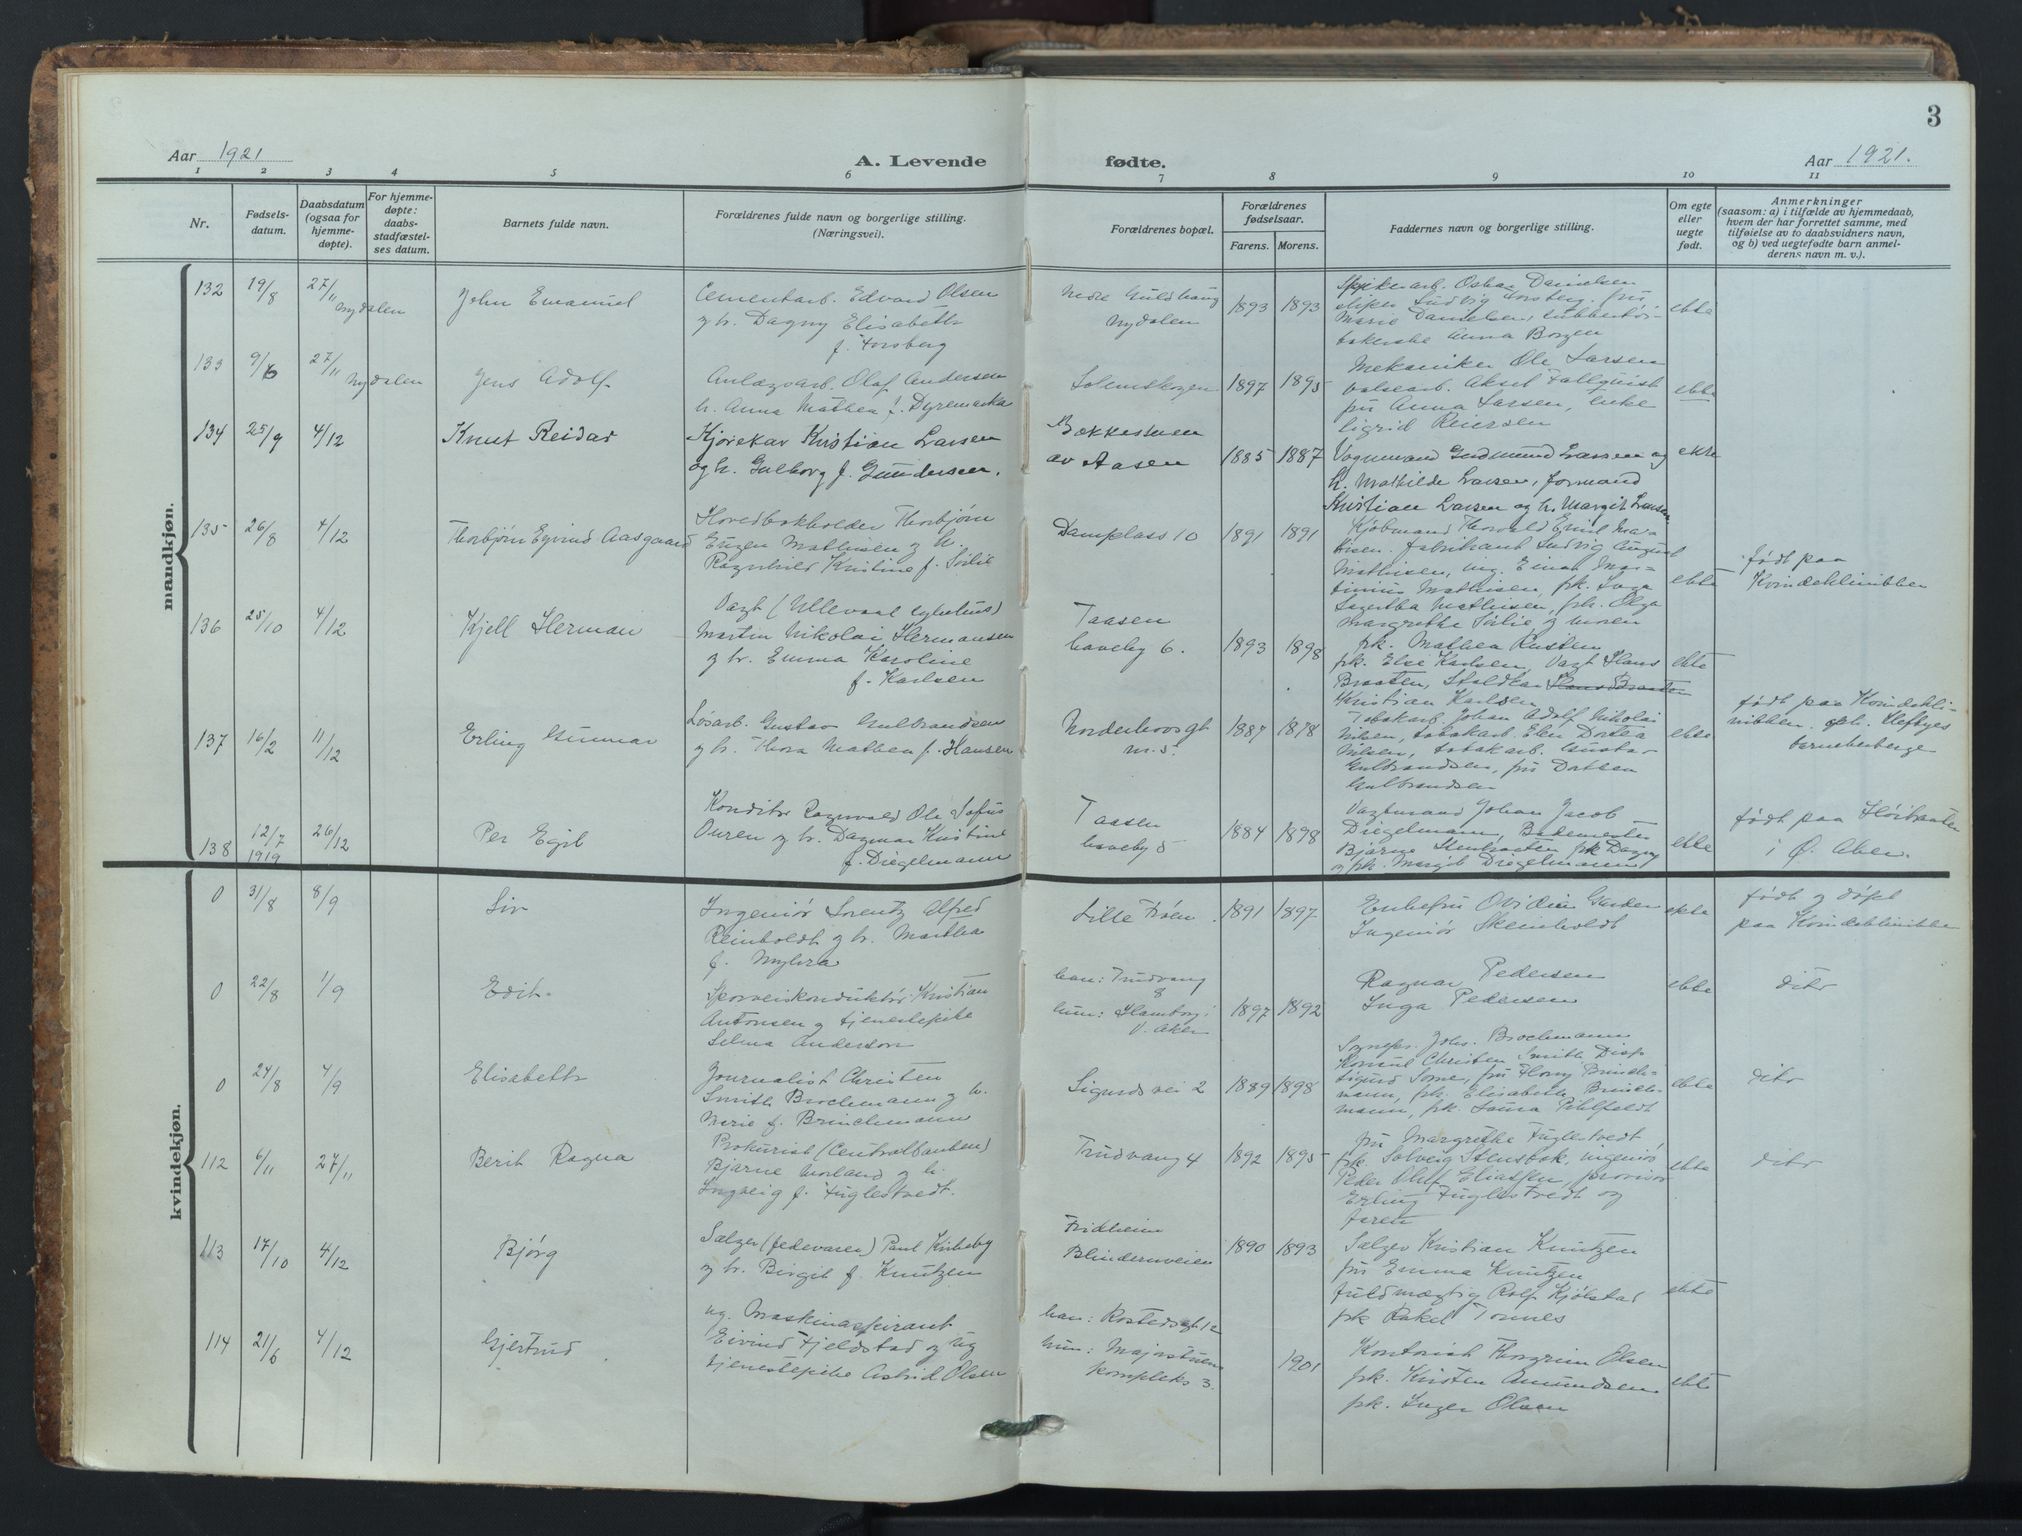 3
Aar 1921
A. Levende
fødte.
Aar 1921.
1 2 3 4 5 6 7 8 9 10 11
Nr.
Fødsels-
datum.
Daabsdatum
(ogsaa for
hjemme-
døpte).
For hjemme-
døpte:
daabs-
stadfæstel-
ses datum.
Barnets fulde navn.
Forældrenes fulde navn og borgerlige stilling.
(Næringsvei).
Forældrenes bopæl.
Forældrenes
fødselsaar.
Farens. Morens.
Faddernes navn og borgerlige stilling.
Om egte
eller
uegte
født.
Anmerkninger
(saasom: a) i tilfælde av hjemmedaab,
hvem der har forrettet samme, med
tilføielse av to daabsvidners navn,
og b) ved uegtefødte barn anmel-
derens navn m. v.).
mandkjøn.
132 19/8 27/11 Nydalen
John Emanuel
Cementarb. Edvard Olsen
og h. Dagny Elisabeth
f. Forsberg
Nedre Guldhaug
Nydalen
1893 1893
Oskar Danielsen
sliper Ludvig Forsberg, fru
Marie Danielsen,
Anna Borgen
ekte
133 9/6 27/11 Nydalen
Jens Adolf
Anlægsarb. Olaf Andersen
h. Anna Mathea f. Dyremarka
Solemskogen
1897 1895
Mekaniker Ole Larsen
valsearb. Aksel Fallquist
fru Anna Larsen, enke
Sigrid Reiersen
ekte
134 25/9 4/12
Knut Reidar
Kjørekar Kristian Larsen
og h. Gulborg f. Gundersen.
Bækkestuen
av Aasen
1885 1887
Vognmand Gudmund Larsen og
h. Mathilde Larsen, formand
Kristian Larsen og h. Margit Larsen
ekte
135 26/8 4/12
Thorbjørn Eyvind Aasgaard
Hovedbokholder Thorbjørn
Eugen Mathisen og h.
Ragnhild Kristine f. Sølie
Damplass 10
1891 1891
Kjøbmand Thorvald Emil Ma-
thisen, fabrikant Ludvig August
Mathisen, ing. Einar Mar-
tinius Mathisen, frk.
Mathisen, frk. Olga
Margrethe Sølie og moren
ekte
født paa
Kvindeklinikken
136 25/10 4/12
Kjell Herman
Vagt (Ullevaal sykehus)
Martin Nikolai Hermansen
og h. Emma Karoline
f. Karlsen
Taasen
haveby 6.
1893 1898
frk. Mathea Rusten
frk. Else Karlsen, Vagt Hans
Braaten, Staldkar Hans Braaten
Kristian Karlsen
ekte
137 16/2 11/12
Erling Gunnar
Løsarb. Gustav Gulbrandsen
og h. Thora Mathea f. Hansen
Norderhovsgt
1887 1878
Tobakarb. Johan Adolf Nikolai
Nilsen, tobakarb. Elen Dortea
Nilsen, tobakarb. Gustav
Gulbrandsen, fru Dorthea
Gulbrandsen
ekte
født paa Kvindekli-
nikken.
138 12/7 1919 26/12
Per Egil
Konditor Ragnvald Ole Sofus
Ouren og h. Dagmar Kristine
f. Diegelmann
Taasen
haveby 5
1884 1898
Vagtmand Johan Jacob
Diegelmann, Bademester
Bjarne frk Dagny
og frk. Margit Diegelmann
ekte
født paa
i Ø. Aker.
kvindekjøn.
0 31/8 8/9
Siv
Ingeniør Lorentz Alfred
Reinboldt og h. Marthea
f. Myhra
Lille Frøen
1891 1897
Enkefru
Ingeniør
ekte
født og døpt
paa Kvindeklinikken
0 22/8 1/9
Edit
Sporveiskonduktør Kristian
Antonsen og tjenestepike
Selma Anderson
han: Trudvang
8
hun: Hamborg i
V. Aker
1897 1892
Ragnar Pedersen
Inga Pedersen
ekte
dito
0 24/8 4/9
Elisabeth
Journalist Christen
Smith Brochmann og h.
Merie f. Brinchmann
Sigurdsvei 2
1889 1898
Sognepr. Johs. Brochmann
Konsul Christen Smith, Disp
Sigurd Some, fru Fanny Brinch-
mann, frk. Elisabeth Brinch-
mann, frk Laura Pihlfeldt
ekte
dito
112 6/11 27/11
Berit Ragna
Prokurist (Centralbanken)
Bjarne Morland og h.
Ingveig f. Fuglestvedt.
Trudvang 4
1892 1895
fru Margrethe Fuglestvedt
frk Solveig Stensbak, ingeniør
Peder Oluf Eliassen, provisor
Erling Fuglestvedt og
faren
ekte
dito
113 17/10 4/12
Bjørg
Sælger (fedevarer) Paul Kirkeby
og h. Birgit f. Knutzen
Fridheim
Blindernveien
1890 1893
Sælger Kristian Knutzen
fru Emma Knutzen
fuldmægtig Rolf Kjølstad
frk Rakel Tonnes
ekte
114 21/6 4/12
Gjertrud
ug. Maskinaspirant
Eivind Fjeldstad og ug
tjenestepike Astrid Olsen
han: Rostedsgt 12
hun: Majorstuens
kompleks 3.
1901
Kontorist Thorgrim Olsen
frk. Kristen Amundsen
frk. Inger Olsen
ekte